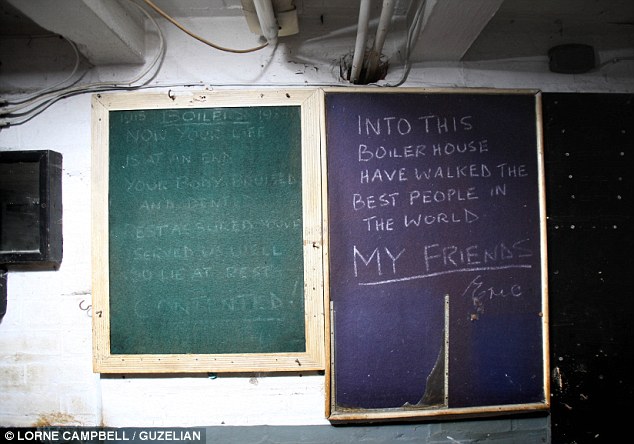 BOILERS
NOW YOUR LIFE
IS AT AN END
YOUR BODY BRUISED
AND BENT
REST ASSURED
SERVED US WELL
SO LIE AT REST
CONTENTED!
INTO THIS
BOILER HOUSE
HAVE WALKED THE
BEST PEOPLE IN
THE WORLD
MY FRIENDS
Eric
© LORNE CAMPBELL / GUZELIAN